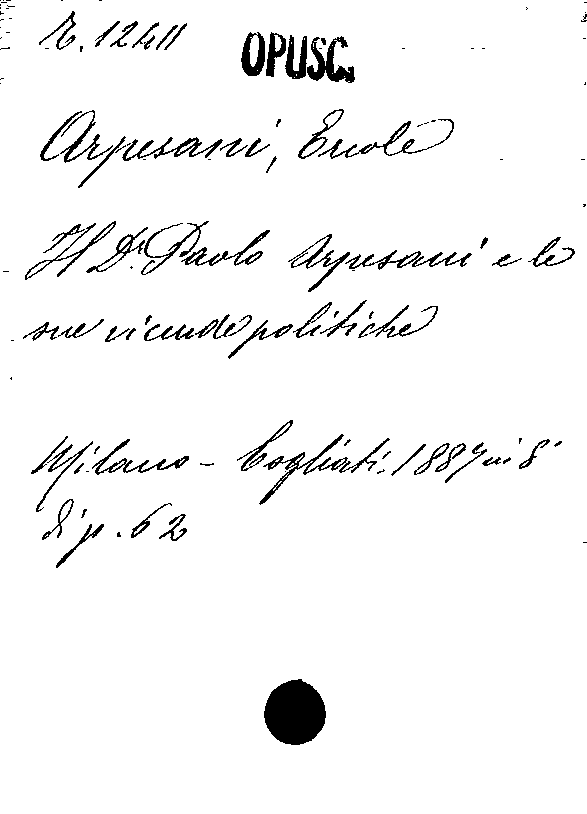 R. 12411
OPUSC.
Arpesani, Ercole
Il Dr. Paolo Arpesani e le
sue vicende politiche
Milano - Cogliati. 1887 in 8°
di p. 62